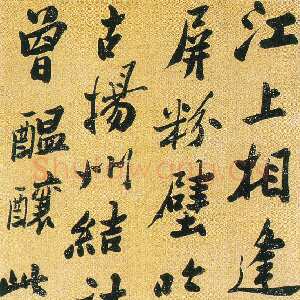 江上相逢
屏粉壁吟
古揚州結
曾醖釀此